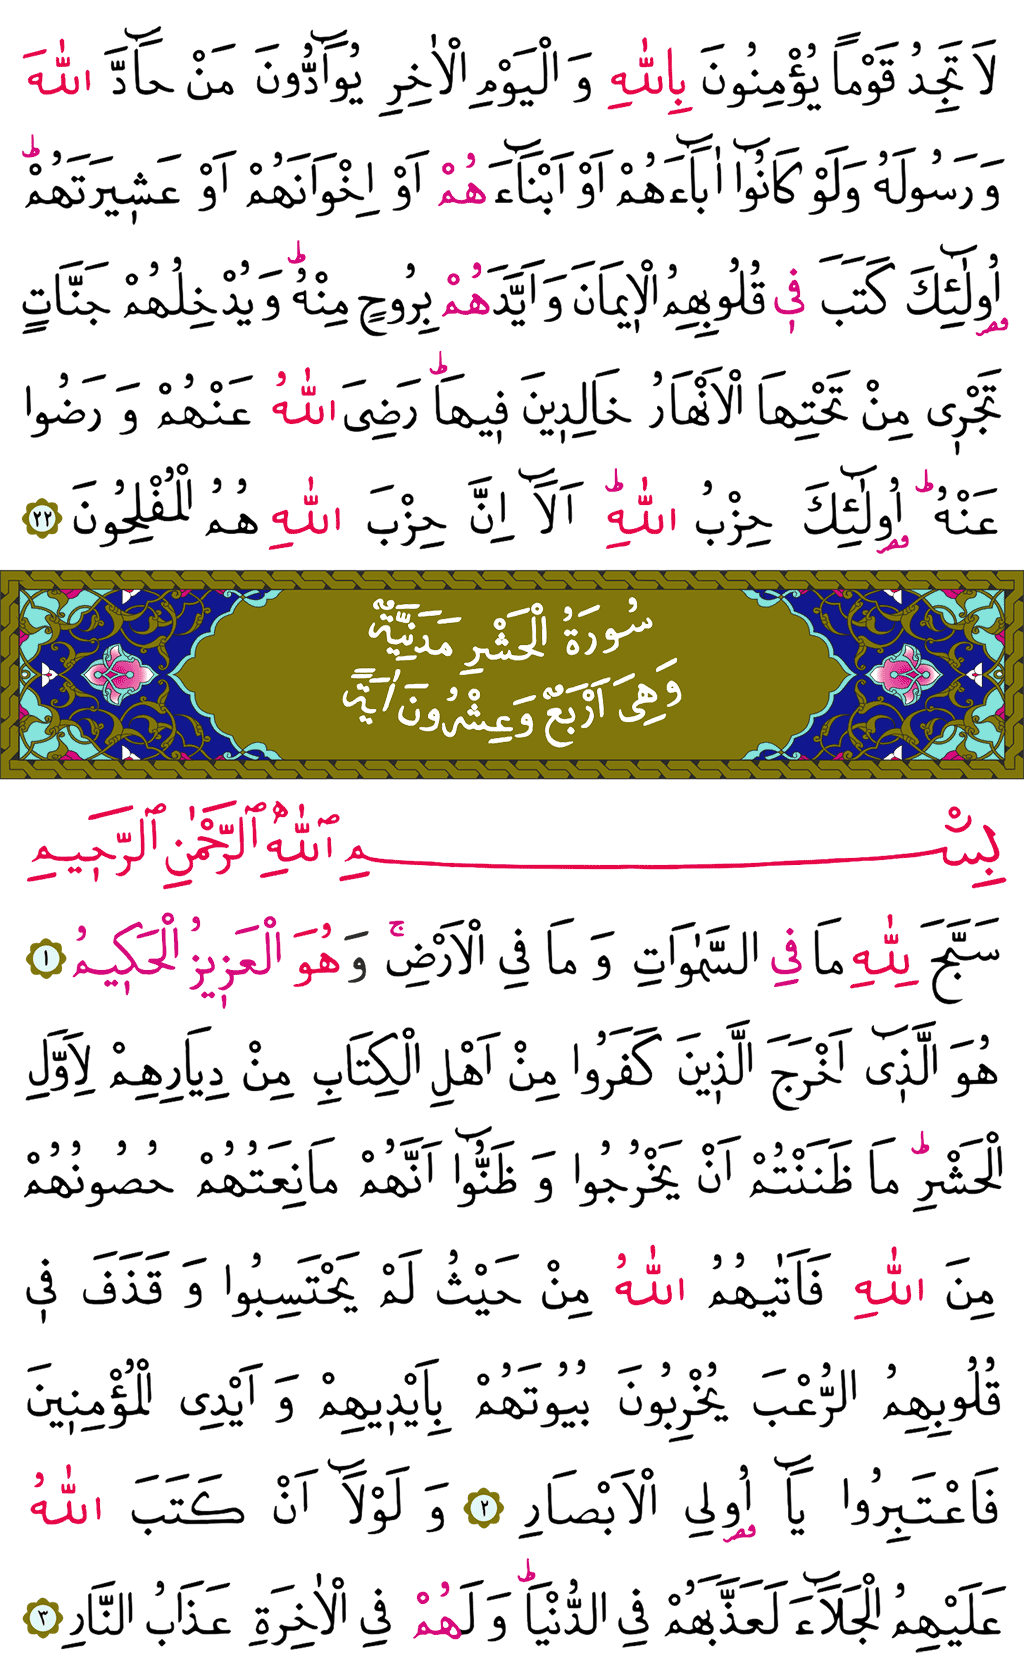 لَا تَجِدُ قَوْماً يُؤْمِنُونَ بِاللّٰهِ وَ الْيَوْمِ الْاٰخِرِ يُوَٓادُّونَ مَنْ حَٓادَّ اللّٰهَ
وَ رَسُولَهُ وَلَوْ كَانُٓوا اٰبَٓاءَهُمْ اَوْ اَبْنَٓاءَهُمْ اَوْ اِخْوَانَهُمْ اَوْ عَشٖيرَتَهُمْ ؕ
اُو۬لٰٓئِكَ كَتَبَ فٖي قُلُوبِهِمُ الْاٖيمَانَ وَ اَيَّدَهُمْ بِرُوحٍ مِنْهُ ؕ وَ يُدْخِلُهُمْ جَنَّاتٍ
تَجْرٖى مِنْ تَحْتِهَا الْاَنْهَارُ خَالِدٖينَ فٖيهَا ؕ رَضِىَ اللّٰهُ عَنْهُمْ وَ رَضُوا
عَنْهُ ؕ اُو۬لٰٓئِكَ حِزْبُ اللّٰهِ ؕ اَلَٓا اِنَّ حِزْبَ اللّٰهِ هُمُ الْمُفْلِحُونَ ٢٢
سُورَةُ الْحَشْرِ مَدَنِيَّةٌ
وَهِىَ اَرْبَعٌ وَعِشْرُونَ اٰيَةً
بِسْمِ ٱللّٰهِ ٱلرَّحْمٰنِ ٱلرَّحٖيمِ
سَبَّحَ لِلّٰهِ مَا فِي السَّمٰوَاتِ وَ مَا فِي الْاَرْضِ ۚ وَ هُوَ الْعَزٖيزُ الْحَكٖيمُ ١
هُوَ الَّذٖٓى اَخْرَجَ الَّذٖينَ كَفَرُوا مِنْ اَهْلِ الْكِتَابِ مِنْ دِيَارِهِمْ لِاَوَّلِ
الْحَشْرِ ؕ مَا ظَنَنْتُمْ اَنْ يَخْرُجُوا وَ ظَنُّٓوا اَنَّهُمْ مَانِعَتُهُمْ حُصُونُهُمْ
مِنَ اللّٰهِ فَاَتٰيهُمُ اللّٰهُ مِنْ حَيْثُ لَمْ يَحْتَسِبُوا وَ قَذَفَ فٖي
قُلُوبِهِمُ الرُّعْبَ يُخْرِبُونَ بُيُوتَهُمْ بِاَيْدٖيهِمْ وَ اَيْدِى الْمُؤْمِنٖينَ
فَاعْتَبِرُوا يَٓا اُو۬لِي الْاَبْصَارِ ٢ وَ لَوْلَٓا اَنْ كَتَبَ اللّٰهُ
عَلَيْهِمُ الْجَلَٓاءَ لَعَذَّبَهُمْ فِي الدُّنْيَا ؕ وَ لَهُمْ فِي الْاٰخِرَةِ عَذَابُ النَّارِ ٣